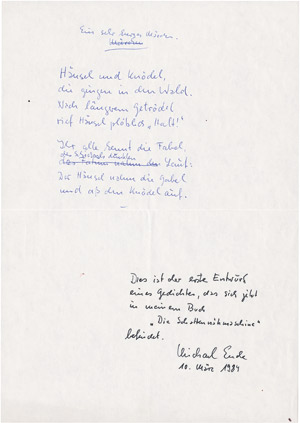 Ein sehr kurzes Märchen.
Märchen
Hänsel und Knödel,
die gingen in den Wald.
Nach längrem Getrödel
rief Hänsel plötzlich „Halt!"
Ihr alle kennt die Fabel,
des Schicksals dunklen
Lauf:
Der Hänsel nahm die Gabel
und aß den Knödel auf.
Dies ist der erste Entwurf
eines Gedichtes, das sich jetzt
in meinem Buch
„Die Schattennähmaschine"
befindet.
Michael Ende
10. März 1984